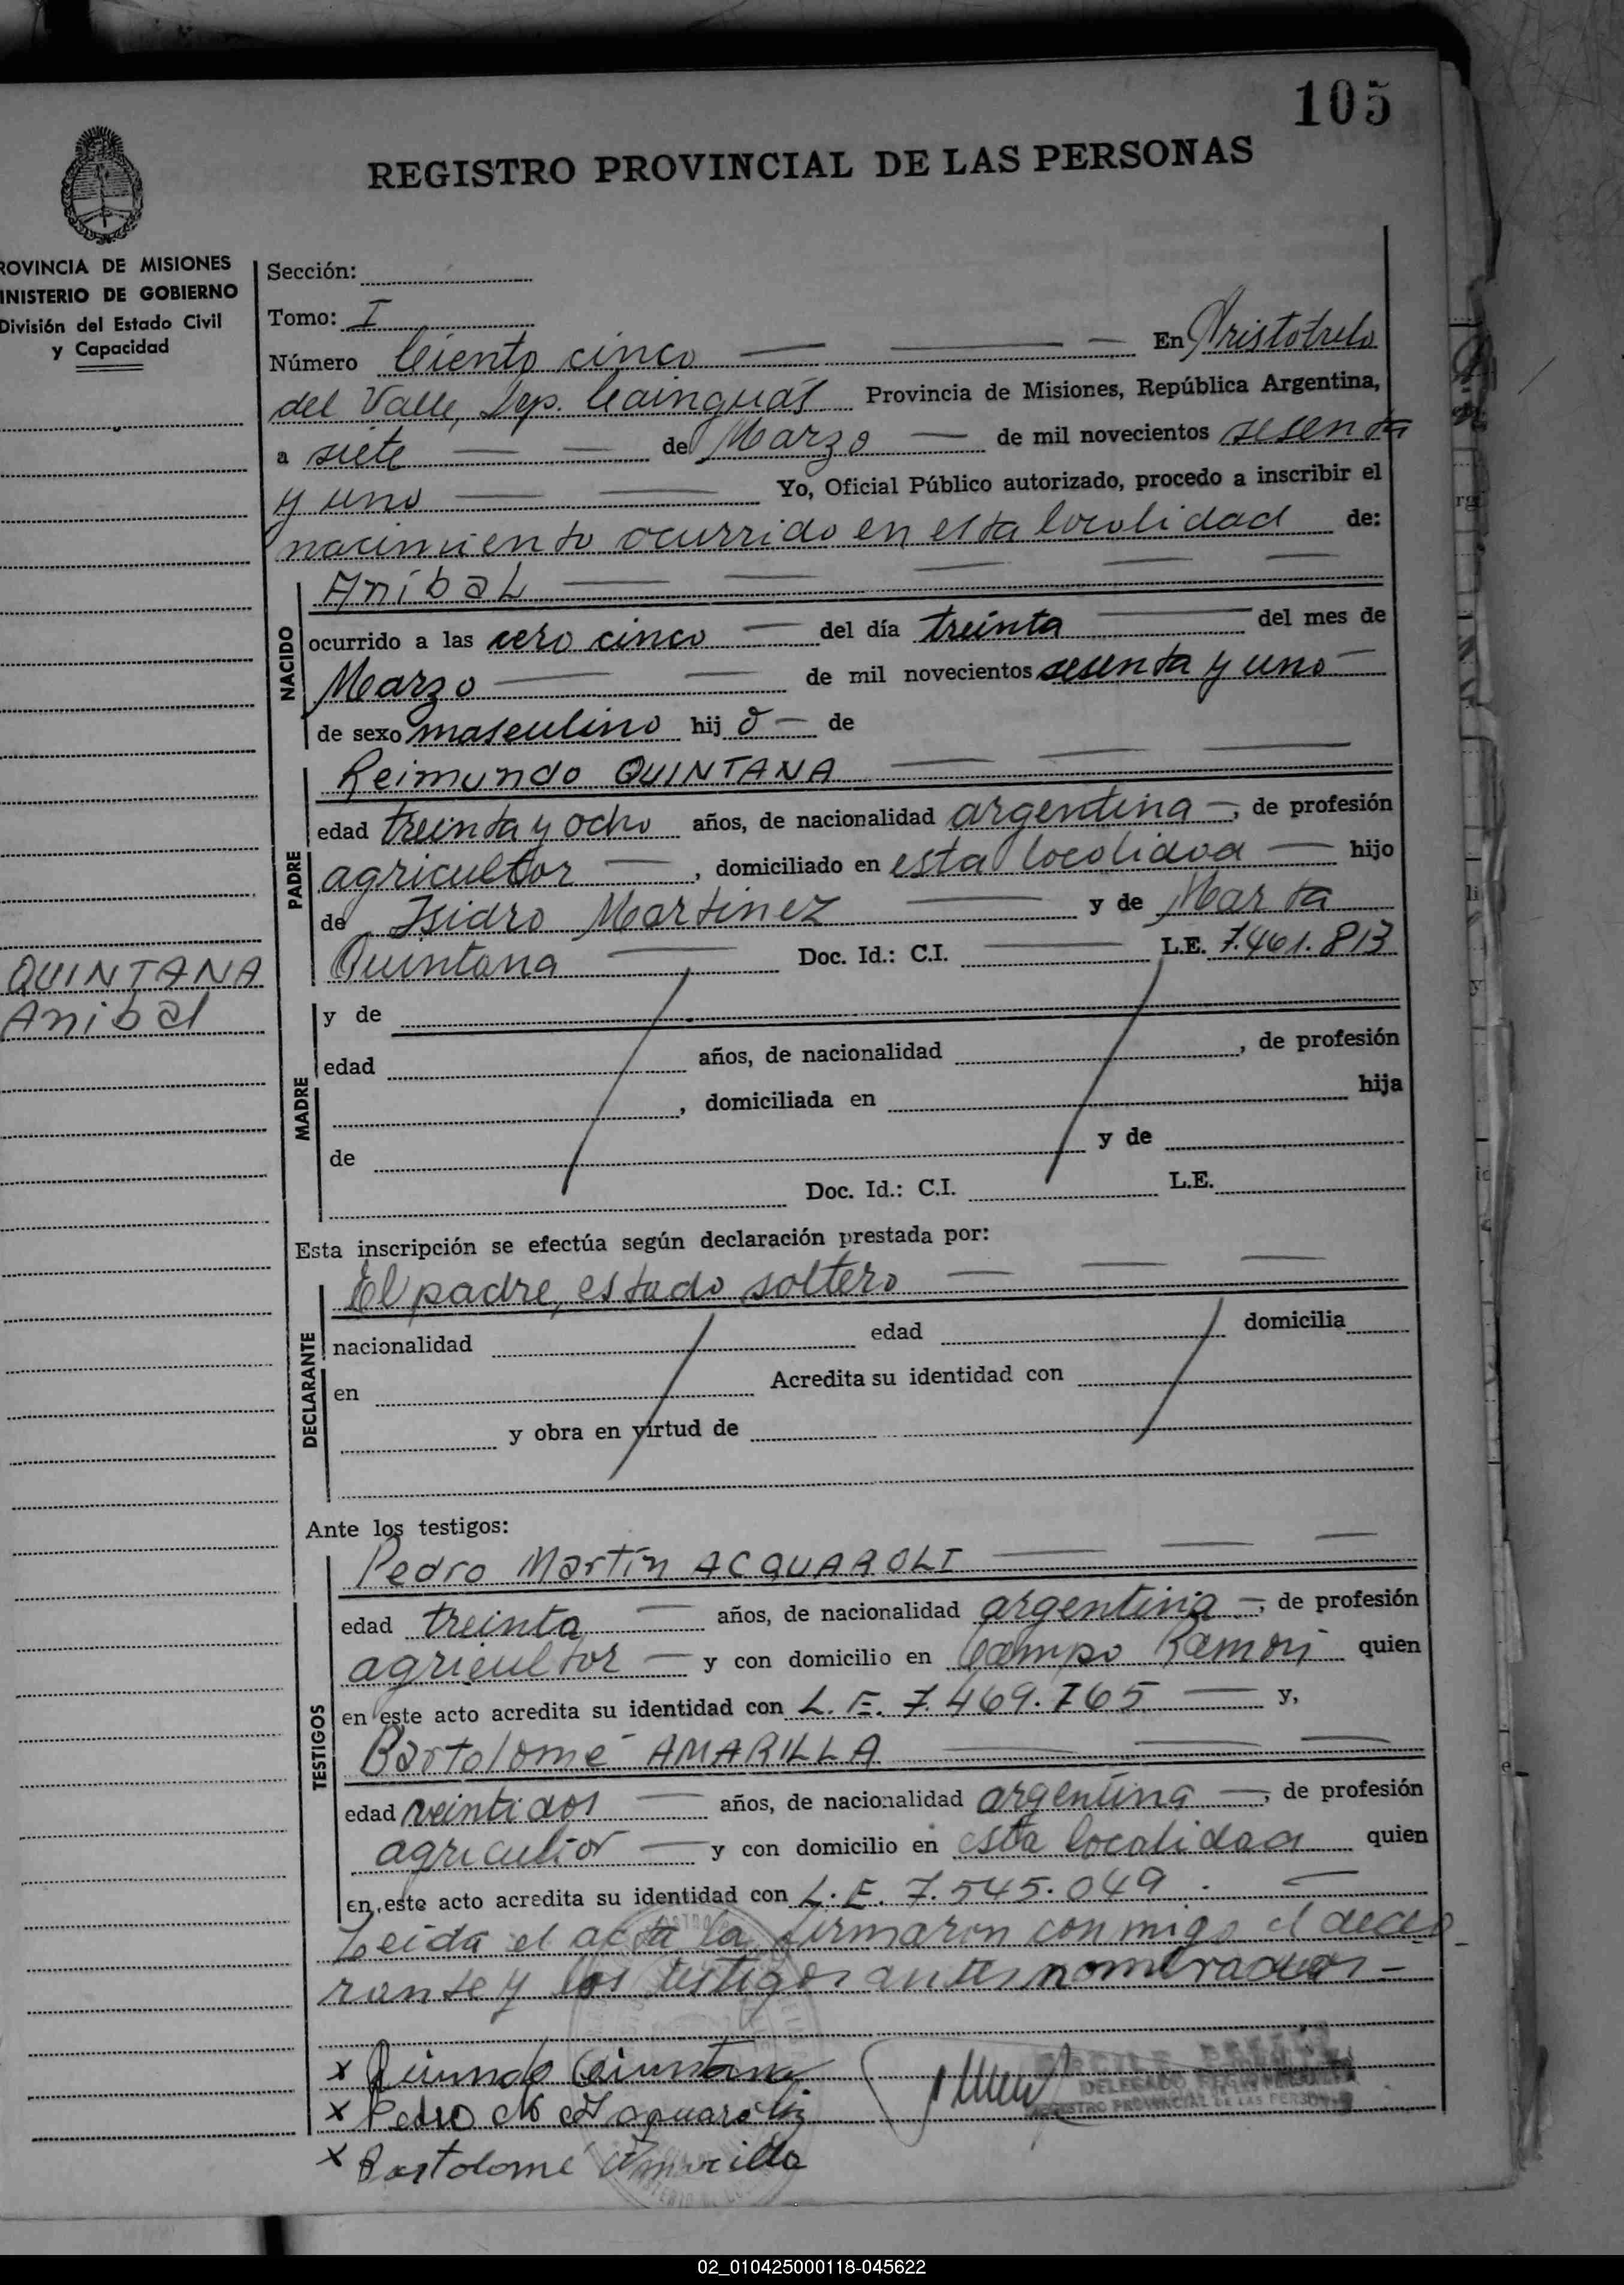 105
REGISTRO PROVINCIAL DE LAS PERSONAS
ROVINCIA DE MISIONES
INISTERIO DE GOBIERNO
División del Estado Civil
y Capacidad
Sección:
Tomo: I
Número Ciento cinco En Aristobulo
del Valle, Dep. Cainguás Provincia de Misiones, República Argentina,
a siete de Marzo de mil novecientos sesenta
y uno Yo, Oficial Público autorizado, procedo a inscribir el
nacimiento ocurrido en esta localidad de:
NACIDO
Anibal
ocurrido a las cero cinco del día treinta del mes de
Marzo de mil novecientos sesenta y uno
de sexo masculino hij o de
PADRE
Reimundo QUINTANA
edad treinta y ocho años, de nacionalidad argentina, de profesión
agricultor, domiciliado en esta localidad hijo
de Isidro Martinez y de Marta
Quintana Doc. Id.: C.I. L.E. 7.461.813
QUINTANA
Anibal
MADRE
y de
edad años, de nacionalidad , de profesión
, domiciliada en hija
de y de
Doc. Id.: C.I. L.E.
Esta inscripción se efectúa según declaración prestada por:
DECLARANTE
El padre, estado soltero
nacionalidad edad domicilia
en Acredita su identidad con
y obra en virtud de
Ante los testigos:
TESTIGOS
Pedro Martín ACQUAROLI
edad treinta años, de nacionalidad argentina, de profesión
agricultor y con domicilio en Campo Ramon quien
en este acto acredita su identidad con L.E. 7.469.765 y,
Bartolomé AMARILLA
edad veintidos años, de nacionalidad argentina, de profesión
agricultor y con domicilio en esta localidad quien
en este acto acredita su identidad con L.E. 7.545.049.
Leida el acta la firmaron conmigo el decla
rante y los testigos antes nombrados-
x Reimundo Quintana
DELEGADO
REGISTRO PROVINCIAL DE LAS PERSONAS
x Pedro M Acquaroli
x Bartolomé Amarilla
02_010425000118-045622